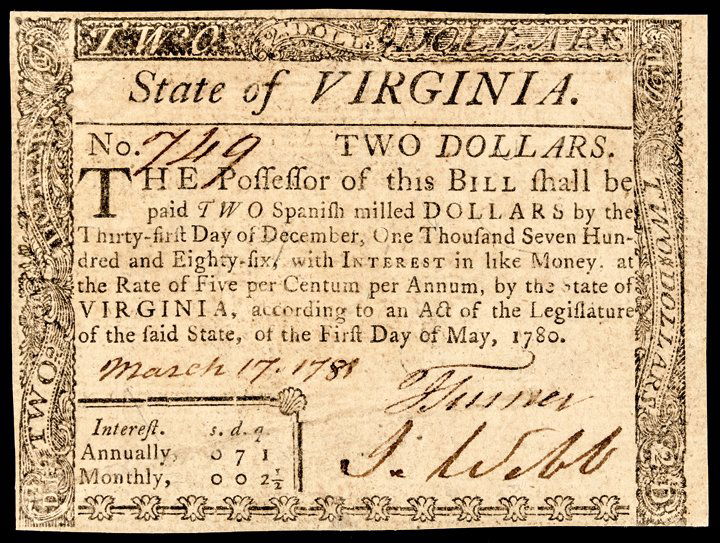 TWO DOLL DOLLARS
State of VIRGINIA.
No. 749 TWO DOLLARS.
THE Poſſeſſor of this BILL ſhall be
paid TWO Spaniſh milled DOLLARS by the
Thirty-firſt Day of December, One Thouſand Seven Hun-
dred and Eighty-ſix, with INTEREST in like Money, at
the Rate of Five per Centum per Annum, by the State of
VIRGINIA, according to an Act of the Legiſlature
of the ſaid State, of the Firſt Day of May, 1780.
March 17. 1781
Turner
J. Webb
Intereſt. s. d. q.
Annually, 0 7 1
Monthly, 0 0 2½
TWO
TWO DOLLARS